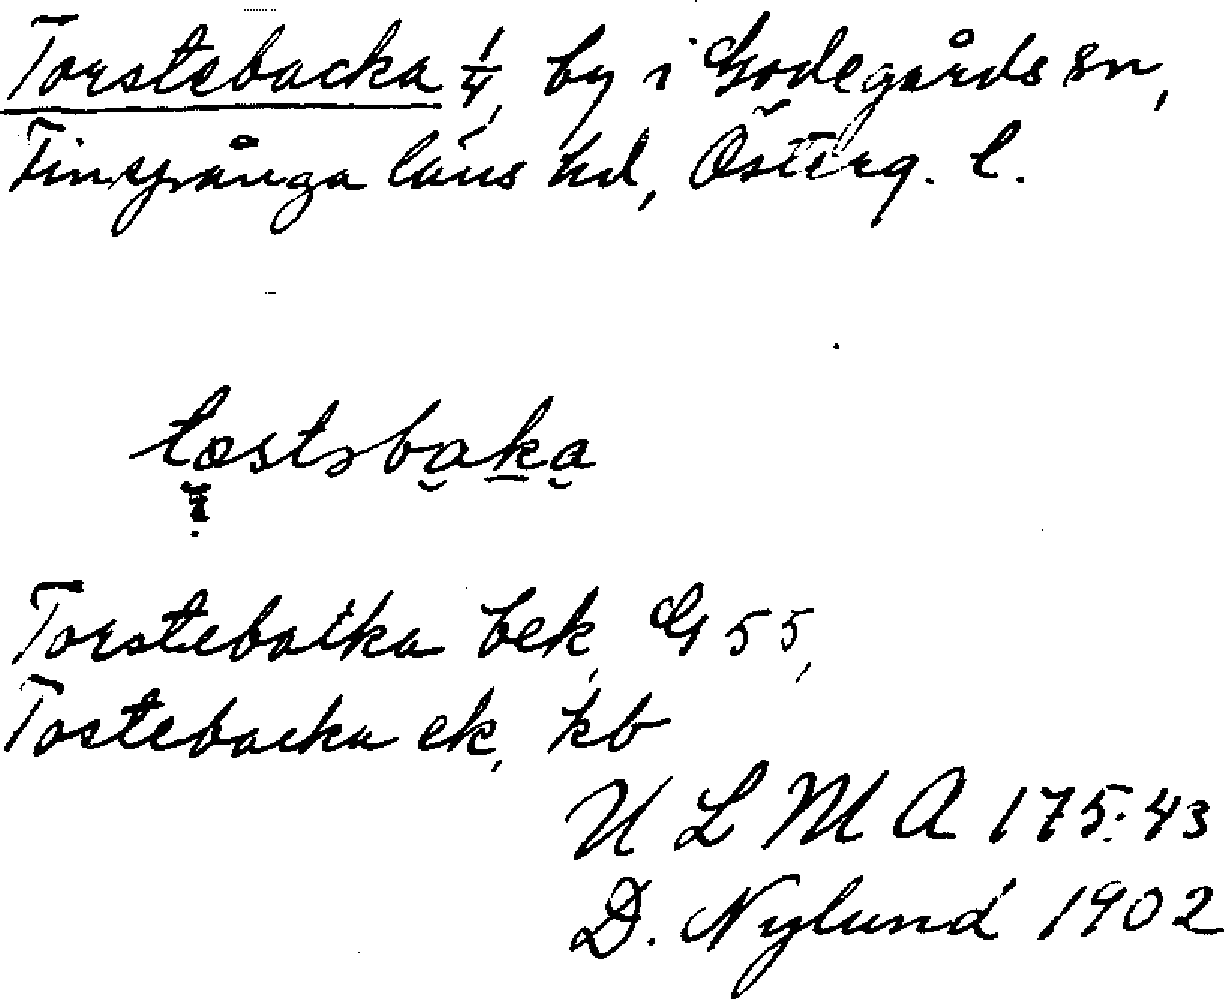 Torstebacka 1/4, by i Godegårds sn,
Finspånga läns hd, Österg. l.
tøstəbaka
Torstebacka bek, G 55,
Tostebacka ek, kb
ULMA 175:43
D. Nylund 1902